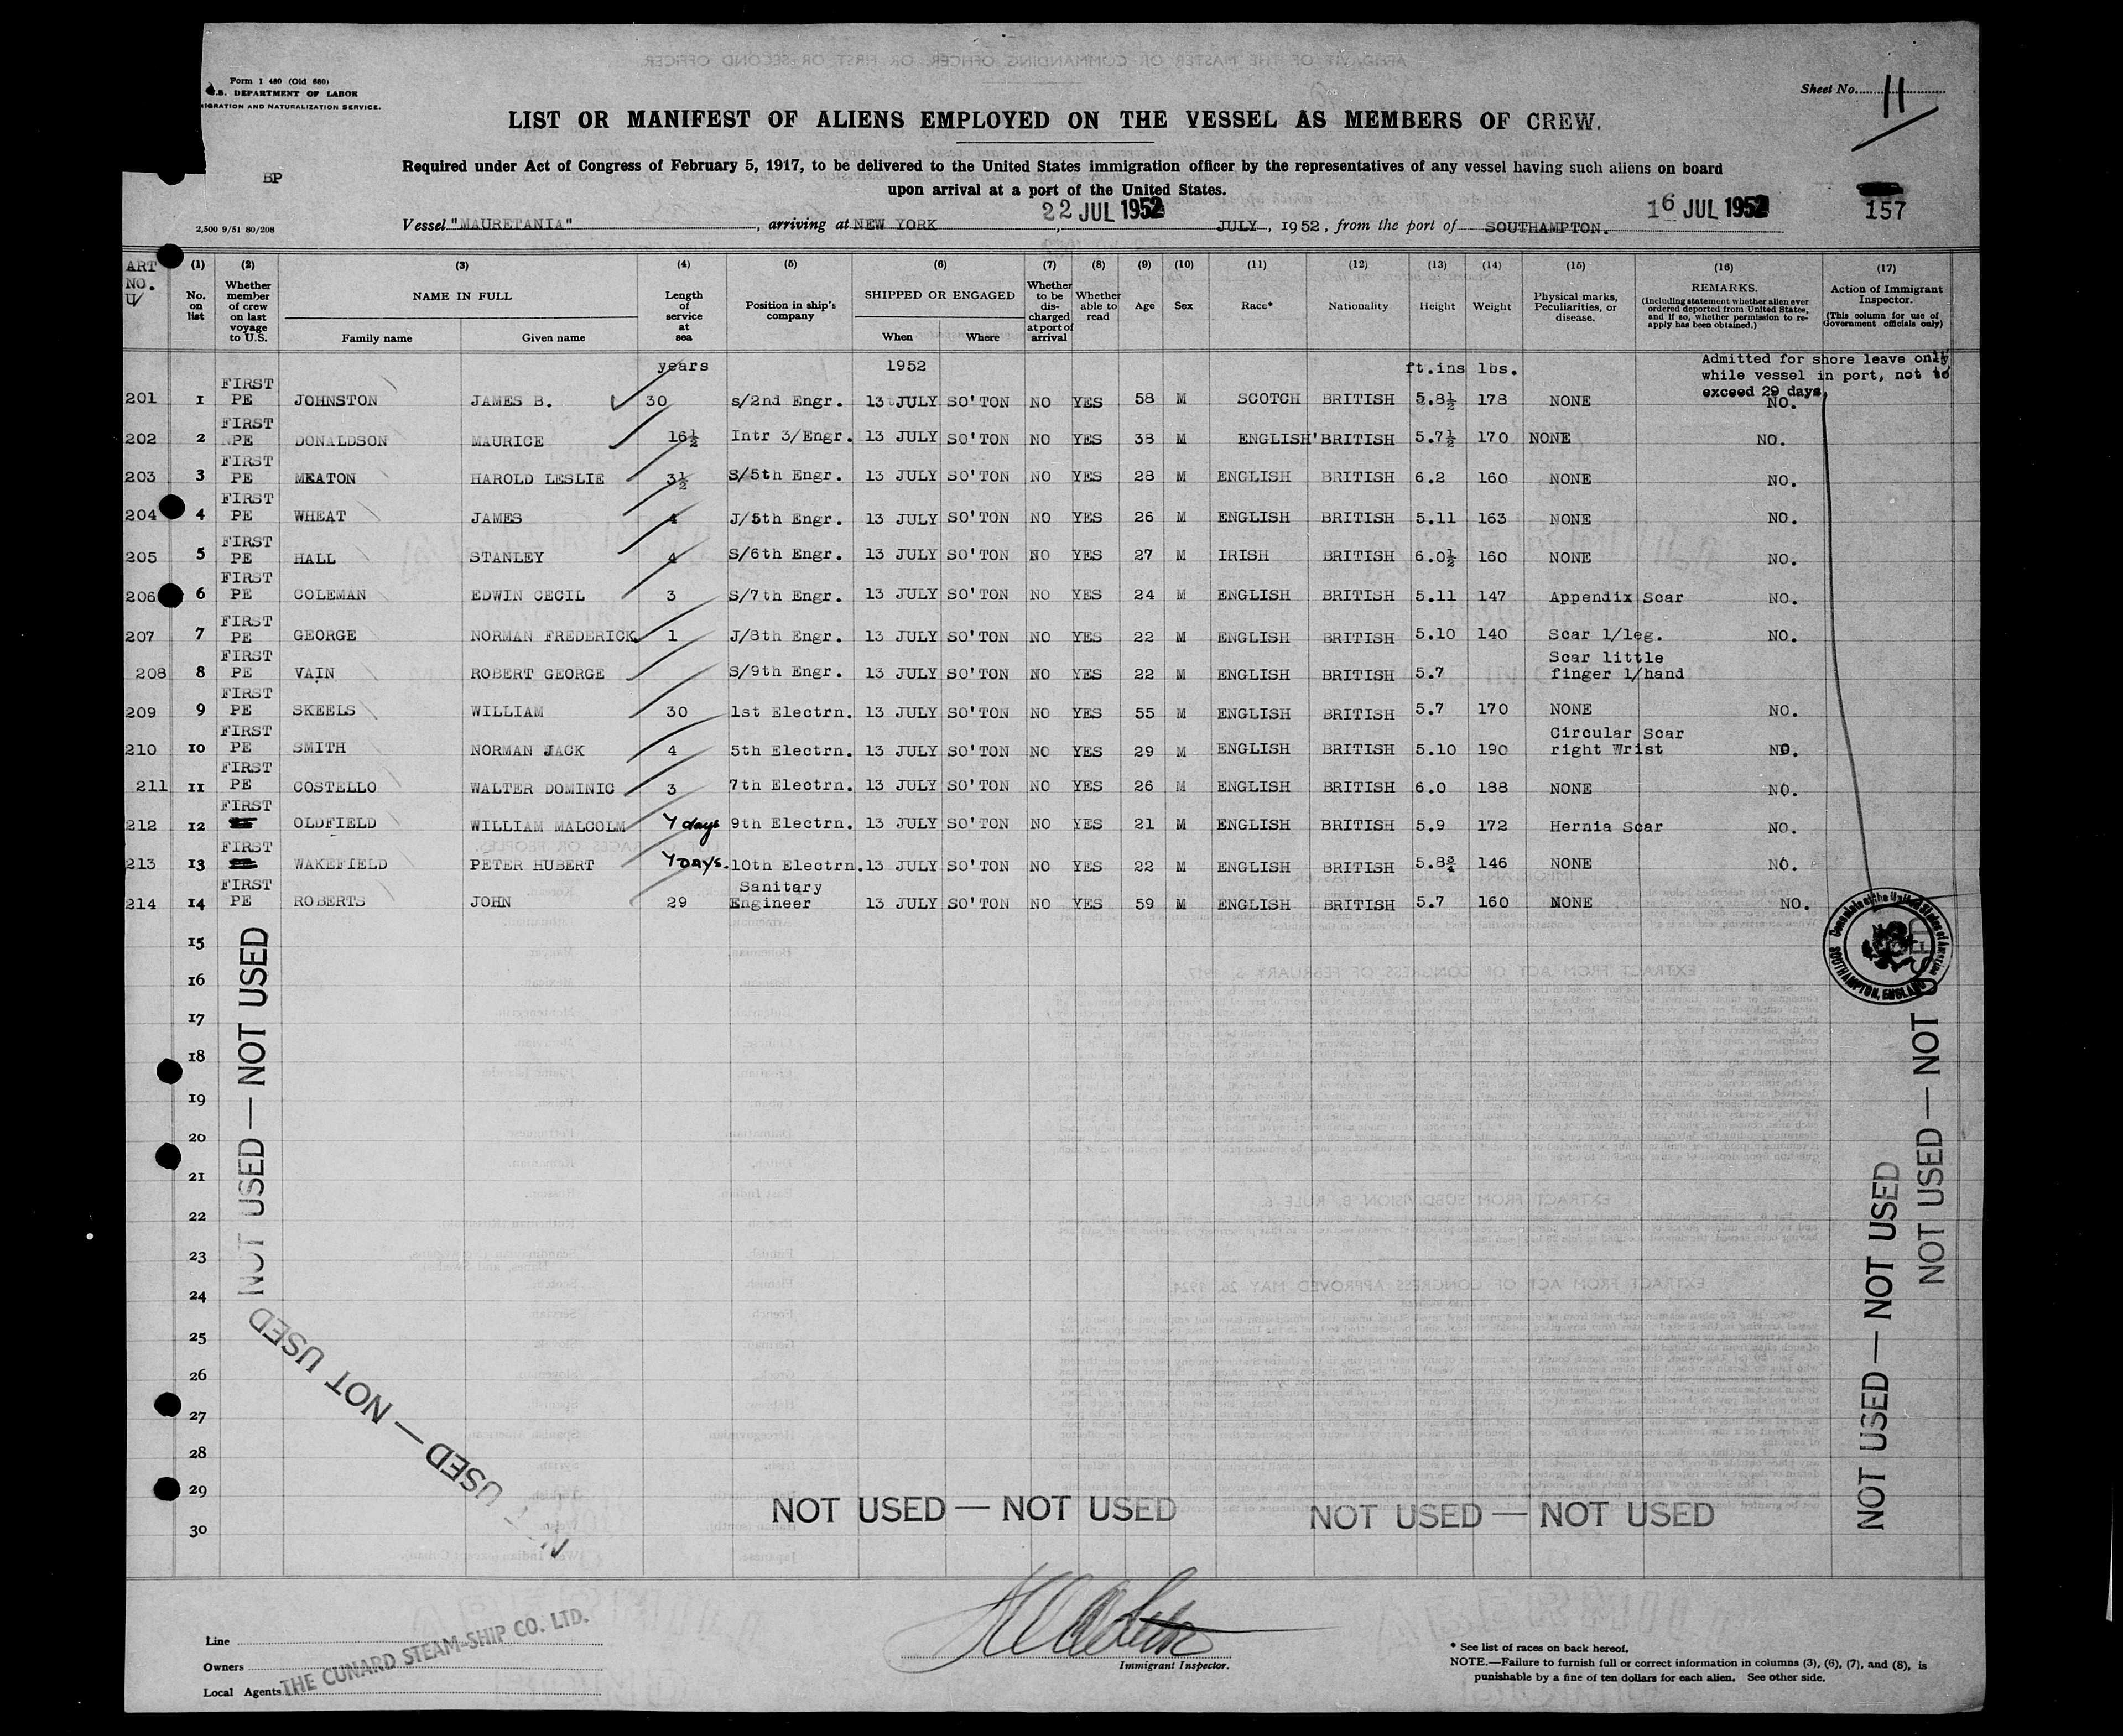 Form I 480 (Old 680)
U.S. DEPARTMENT OF LABOR
IGRATION AND NATURALIZATION SERVICE.
Sheet No. 11
LIST OR MANIFEST OF ALIENS EMPLOYED ON THE VESSEL AS MEMBERS OF CREW.
Required under Act of Congress of February 5, 1917, to be delivered to the United States immigration officer by the representatives of any vessel having such aliens on board
upon arrival at a port of the United States.
BP
157
2,500 9/51 80/208
Vessel "MAURETANIA", arriving at NEW YORK, 22 JUL 1952 JULY, 1952, from the port of SOUTHAMPTON. 16 JUL 1952
ART NO. (1) No. on list (2) Whether member of crew on last voyage to U.S. (3) NAME IN FULL Family name Given name (4) Length of service at sea (5) Position in ship's company (6) SHIPPED OR ENGAGED When Where (7) Whether to be discharged at port of arrival (8) Whether able to read (9) Age (10) Sex (11) Race* (12) Nationality (13) Height (14) Weight (15) Physical marks, Peculiarities, or disease. (16) REMARKS. (Including statement whether alien ever ordered deported from United States, and if so, whether permission to re-apply has been obtained.) (17) Action of Immigrant Inspector. (This column for use of Government officials only)
years 1952 ft.ins lbs.
Admitted for shore leave only
while vessel in port, not to
exceed 29 days.
201 1 FIRST PE JOHNSTON JAMES B. 30 s/2nd Engr. 13 JULY SO'TON NO YES 58 M SCOTCH BRITISH 5.8½ 178 NONE NO.
202 2 FIRST PE DONALDSON MAURICE 16½ Intr 3/Engr. 13 JULY SO'TON NO YES 38 M ENGLISH BRITISH 5.7½ 170 NONE NO.
203 3 FIRST PE MEATON HAROLD LESLIE 3½ S/5th Engr. 13 JULY SO'TON NO YES 28 M ENGLISH BRITISH 6.2 160 NONE NO.
204 4 FIRST PE WHEAT JAMES 4 J/5th Engr. 13 JULY SO'TON NO YES 26 M ENGLISH BRITISH 5.11 163 NONE NO.
205 5 FIRST PE HALL STANLEY 4 S/6th Engr. 13 JULY SO'TON NO YES 27 M IRISH BRITISH 6.0½ 160 NONE NO.
206 6 FIRST PE COLEMAN EDWIN CECIL 3 S/7th Engr. 13 JULY SO'TON NO YES 24 M ENGLISH BRITISH 5.11 147 Appendix Scar NO.
207 7 FIRST PE GEORGE NORMAN FREDERICK 1 J/8th Engr. 13 JULY SO'TON NO YES 22 M ENGLISH BRITISH 5.10 140 Scar l/leg. NO.
208 8 FIRST PE VAIN ROBERT GEORGE S/9th Engr. 13 JULY SO'TON NO YES 22 M ENGLISH BRITISH 5.7 Scar little finger l/hand
209 9 FIRST PE SKEELS WILLIAM 30 1st Electrn. 13 JULY SO'TON NO YES 55 M ENGLISH BRITISH 5.7 170 NONE NO.
210 10 FIRST PE SMITH NORMAN JACK 4 5th Electrn. 13 JULY SO'TON NO YES 29 M ENGLISH BRITISH 5.10 190 Circular Scar right Wrist NO.
211 11 FIRST PE COSTELLO WALTER DOMINIC 3 7th Electrn. 13 JULY SO'TON NO YES 26 M ENGLISH BRITISH 6.0 188 NONE NO.
212 12 FIRST OLDFIELD WILLIAM MALCOLM 7 days 9th Electrn. 13 JULY SO'TON NO YES 21 M ENGLISH BRITISH 5.9 172 Hernia Scar NO.
213 13 FIRST WAKEFIELD PETER HUBERT 7 DAYS. 10th Electrn. 13 JULY SO'TON NO YES 22 M ENGLISH BRITISH 5.8¾ 146 NONE NO.
214 14 FIRST PE ROBERTS JOHN 29 Sanitary Engineer 13 JULY SO'TON NO YES 59 M ENGLISH BRITISH 5.7 160 NONE NO.
Consulate of the United States of America
SOUTHAMPTON, ENGLAND
15
16
17
18
19
20
21
22
23
24
25
26
27
28
29
30
NOT USED — NOT USED
NOT USED — NOT USED
NOT USED — NOT USED
NOT USED — NOT USED
NOT USED — NOT USED
NOT USED — NOT USED
Line
Owners
Local Agents
THE CUNARD STEAM-SHIP CO. LTD.
Immigrant Inspector.
* See list of races on back hereof.
NOTE.—Failure to furnish full or correct information in columns (3), (6), (7), and (8), is
punishable by a fine of ten dollars for each alien. See other side.